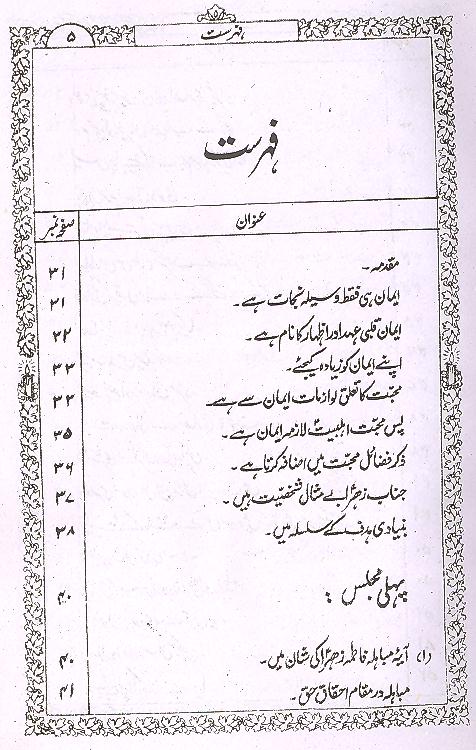 فہرست ۵
فہرست
عنوان صفحہ نمبر
مقدمہ۔ ۳۱
ایمان ہی فقط وسیلہ نجات ہے۔ ۳۱
ایمان قلبی عہد اور اظہار کا نام ہے۔ ۳۲
اپنے ایمان کو زیادہ کیجئے۔ ۳۳
محبت کا تعلق لوازمات ایمان سے ہے۔ ۳۴
پس محبت اہلبیتؑ لازمہ ایمان ہے۔ ۳۵
ذکر فضائل محبت میں اضافہ کرتا ہے۔ ۳۶
جناب زہراؑ بے مثال شخصیت ہیں۔ ۳۷
بنیادی ہدف کے سلسلہ میں۔ ۳۸
پہلی مجلس : ۴۰
(۱) آیۂ مباہلہ فاطمہ زہراؑ کی شان میں۔ ۴۰
مباہلہ در مقام احقاق حق۔ ۴۱